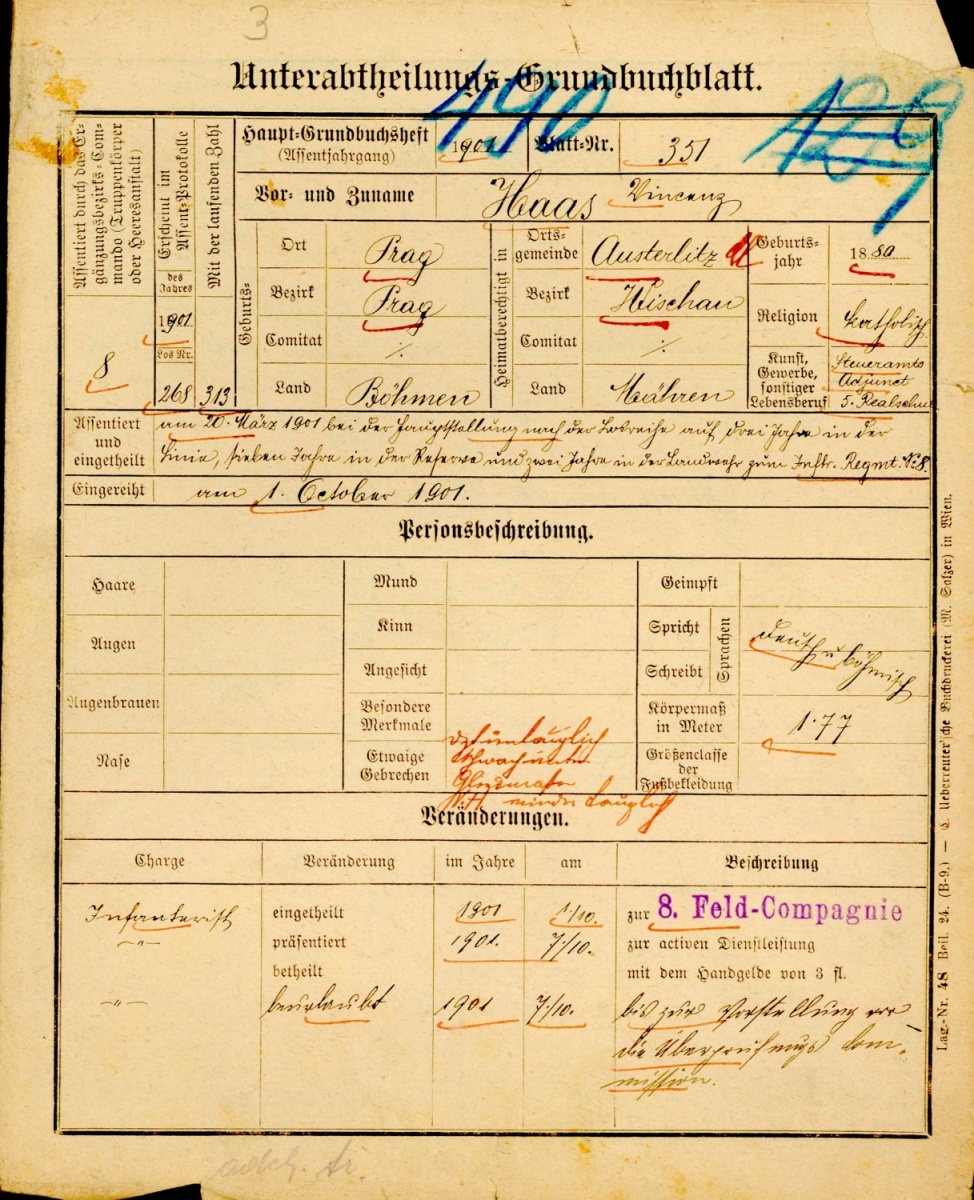 3
Unterabtheilungs-Grundbuchblatt.
490
109
Assentiert durch das Ergänzungsbezirks-Commando (Truppenkörper oder Heeresanstalt)
8
Erscheint im Assent-Protokolle
des Jahres
1901
Los Nr.
268
Mit der laufenden Zahl
313
Haupt-Grundbuchsheft
(Assentjahrgang)
1901
Blatt-Nr.
351
Vor- und Zuname
Haas Vincenz
Geburts-
Ort
Prag
Bezirk
Prag
Comitat
./.
Land
Böhmen
Heimatberechtigt in
Ortsgemeinde
Austerlitz
Bezirk
Wischau
Comitat
./.
Land
Mähren
Geburtsjahr
1880
Religion
katholisch
Kunst, Gewerbe, sonstiger Lebensberuf
Steueramts
Adjunct
5. Realschule
Assentiert und eingetheilt
am 20. März 1901 bei der Hauptstellung nach der Losreihe auf drei Jahre in der
Linie, sieben Jahre in der Reserve und zwei Jahre in der Landwehr zum Inftr. Regmt. No 8.
Eingereiht
am 1. October 1901.
Personsbeschreibung.
Haare
Augen
Augenbrauen
Nase
Mund
Kinn
Angesicht
Besondere Merkmale
Etwaige Gebrechen
minder tauglich
Geimpft
Spricht
Schreibt
Sprachen
deutsch u böhmisch
Körpermaß in Meter
1·77
Größenclasse der Fußbekleidung
Veränderungen.
Charge
Veränderung
im Jahre
am
Beschreibung
Infanterist eingetheilt 1901 1./10. zur 8. Feld-Compagnie
-"- präsentiert 1901. 7./10. zur activen Dienstleistung
betheilt mit dem Handgelde von 3 fl.
-"- beurlaubt 1901 7./10. bis zur Vorstellung vor
die Überprüfungs Com-
mission.
Lag.-Nr. 48 Beil. 24. (B-9.) — C. Ueberreuter'sche Buchdruckerei (M. Salzer) in Wien.